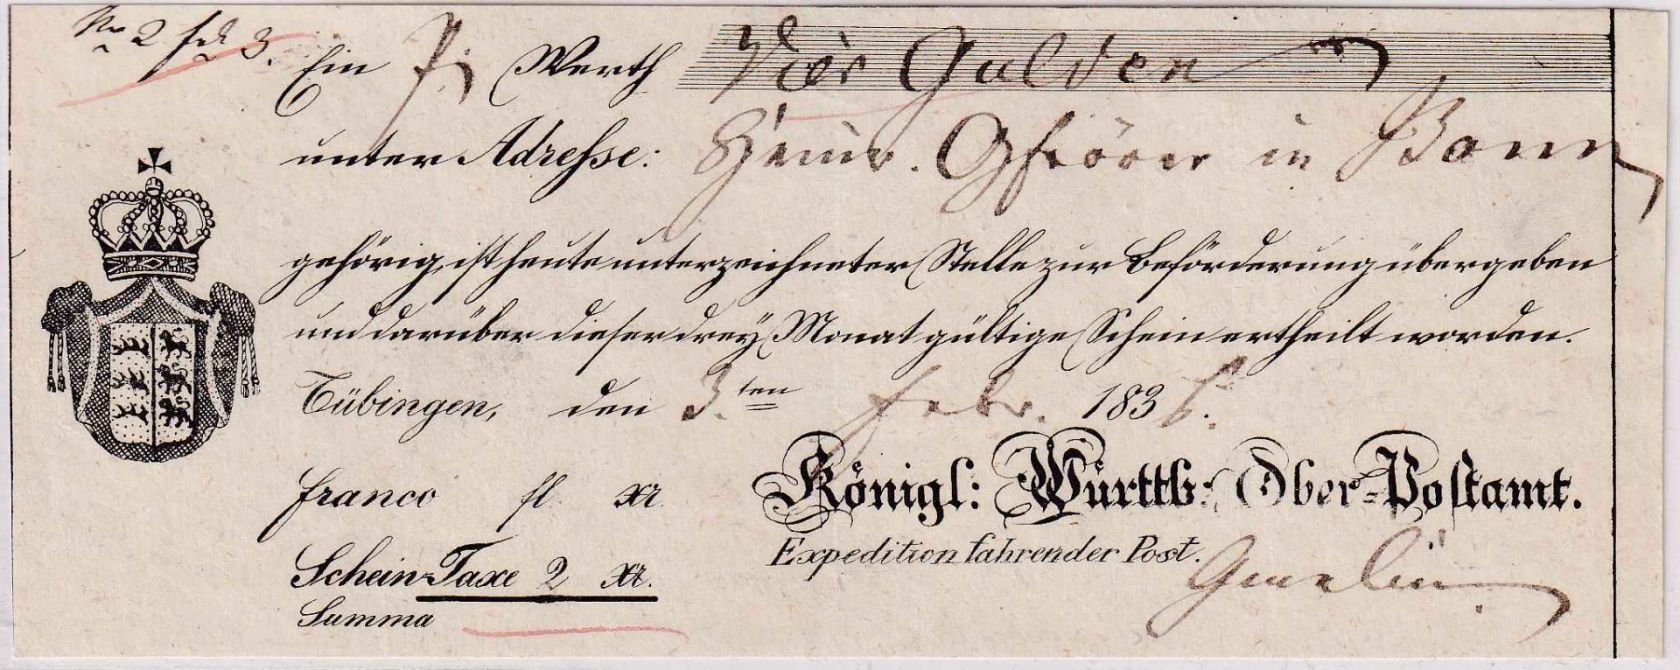 No 2
3.
Ein Werth Vier Gulden
unter Adresse: Gfrörer in Bonn
gehörig, ist heute unterzeichneter Stelle zur Beförderung übergeben
und darüber dieser drey Monat gültige Schein ertheilt worden.
Tübingen, den 3.ten Febr. 183
franco fl. xr.
Schein-Taxe 2 xr.
Summa
Königl: Württb: Ober-Postamt.
Expedition fahrender Post.
Gmelin